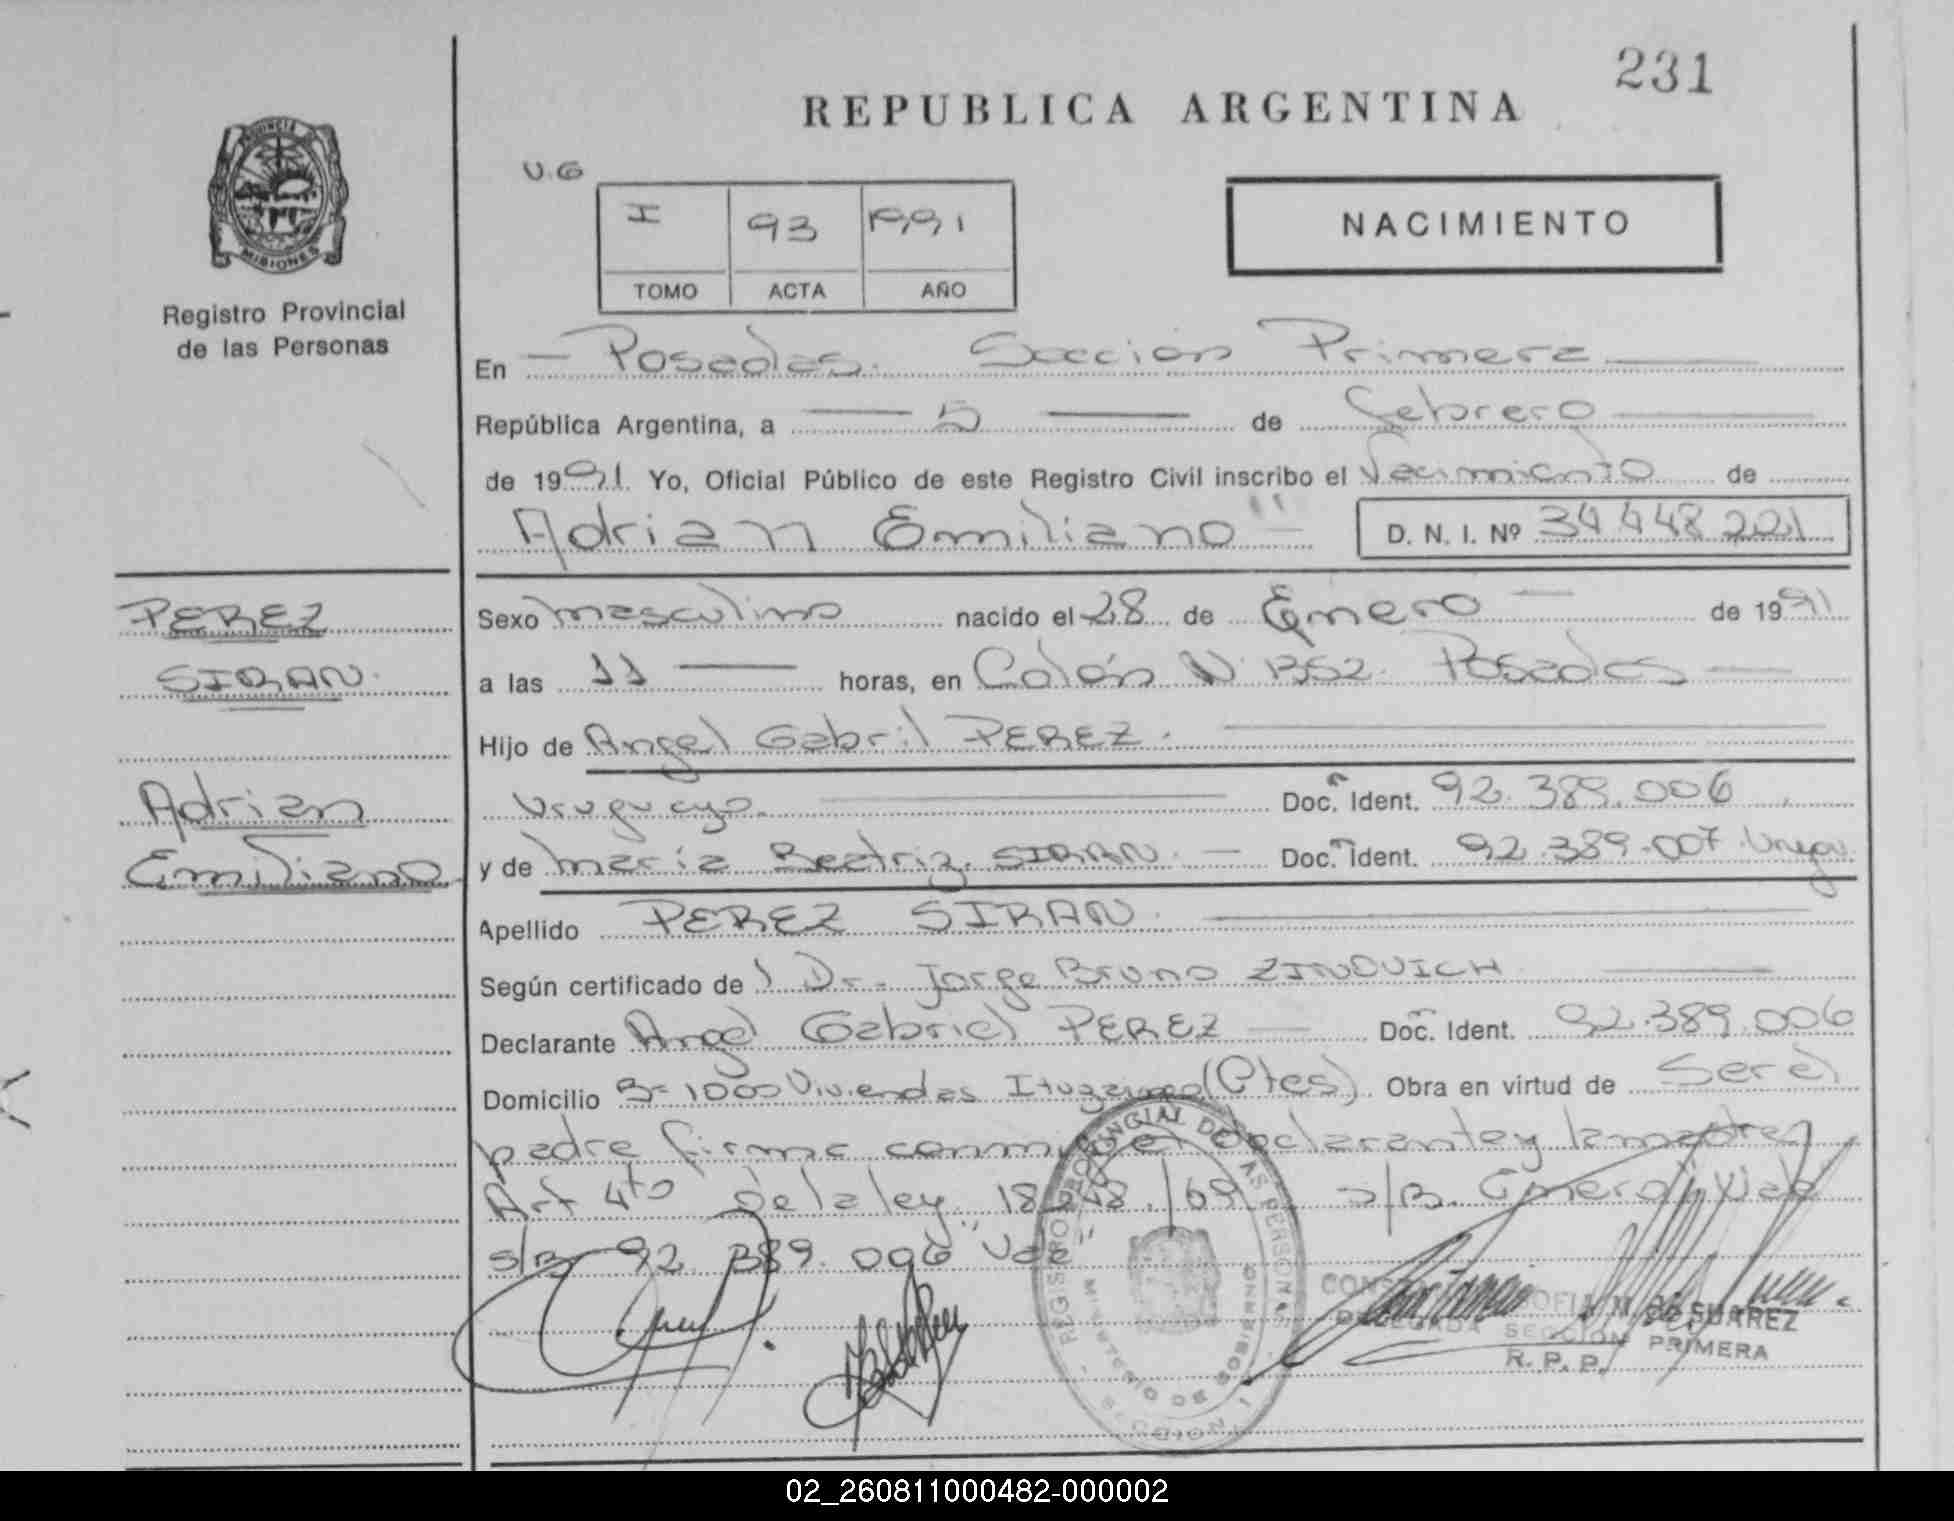 231
REPUBLICA ARGENTINA
PROVINCIA DE
MISIONES
Registro Provincial
de las Personas
U.G
I 93 1991
TOMO ACTA AÑO
NACIMIENTO
En Posadas. Seccion Primera
República Argentina, a 5 de febrero
de 1991. Yo, Oficial Público de este Registro Civil inscribo el Nacimiento de
Adrian Emiliano D. N. I. Nº 34 448 221
PEREZ
SIRAN.
Adrian
Emiliano
Sexo masculino nacido el 28 de Enero de 1991
a las 11 horas, en Colón N 1352. Posadas
Hijo de Angel Gabril PEREZ.
Uruguayo. Doc. Ident. 92.389.006
y de maria Beatriz. SIRAN. Doc. Ident. 92.389.007.
Apellido PEREZ SIRAN.
Según certificado de l Dr. Jorge Bruno ZINOVICH
Declarante Angel Gabriel PEREZ Doc. Ident. 92.389.006
Domicilio Bº 1000 Viviendas Ituzaingo (Ctes). Obra en virtud de Ser el
padre firma conmigo el declarante y la madre
Art 4to de la ley 18.248/69 s/B. Enero Vale
s/B 92.389.006 "Vale"
REGISTRO PROVINCIAL DE LAS PERSONAS
MINISTERIO DE GOBIERNO
SECCION 1
SOFIA M. DE SUAREZ
DELEGADA SECCION PRIMERA
R. P. P.
02_260811000482-000002